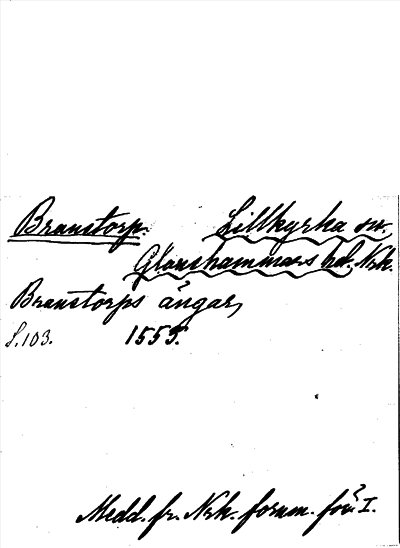 Branstorp. Lillkyrka sn.
Glanshammars hd. Nrk.
Branstorps ängar,
s. 103. 1555.
Medd. fr. Nrk. fornm. för. I.